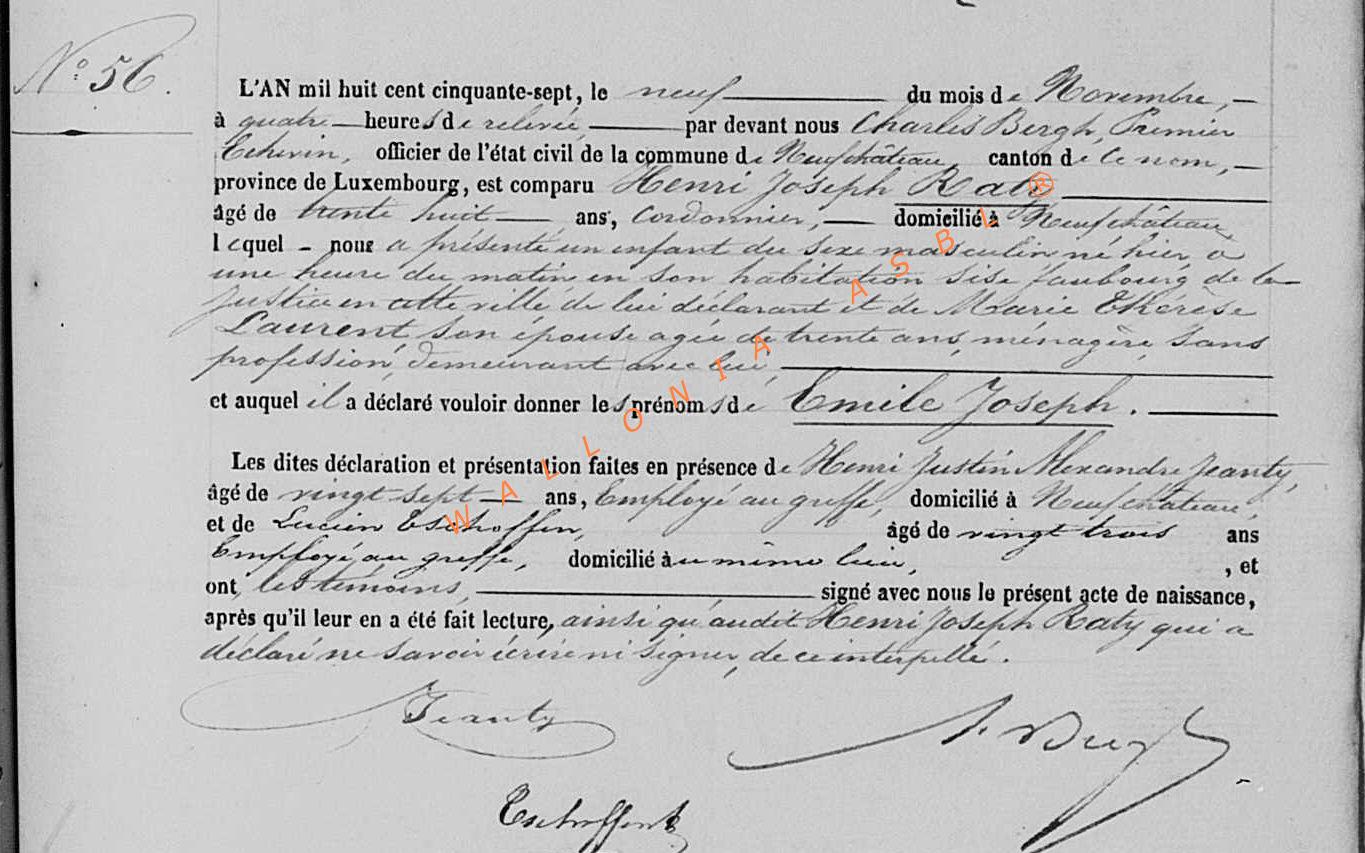 N° 56.
L'AN mil huit cent cinquante-sept, le neuf du mois de Novembre,
à quatre heures de relevée, par devant nous Charles Bergh, Premier
Echevin, officier de l'état civil de la commune de Neufchâteau, canton de ce nom,
province de Luxembourg, est comparu Henri Joseph Raty
âgé de trente huit ans, Cordonnier, domicilié à Neufchâteau,
lequel nous a présenté un enfant du sexe masculin né hier à
une heure du matin en son habitation sise faubourg de la
Justice en cette ville de lui déclarant et de Marie Thérèse
Laurent son épouse agée de trente ans, ménagère, sans
profession, demeurant avec lui,
et auquel il a déclaré vouloir donner les prénoms de Emile Joseph.
Les dites déclaration et présentation faites en présence de Henri Justin Alexandre Jeanty,
âgé de vingt sept ans, Employé au greffe, domicilié à Neufchâteau,
et de Lucien Eschoffen, âgé de vingt trois ans
Employé au greffe, domicilié au même lieu, , et
ont, les témoins, signé avec nous le présent acte de naissance,
après qu'il leur en a été fait lecture, ainsi qu'audit Henri Joseph Raty qui a
déclaré ne savoir écrire ni signer, de ce interpellé.
Jeanty
WALLONIA ASBL ®